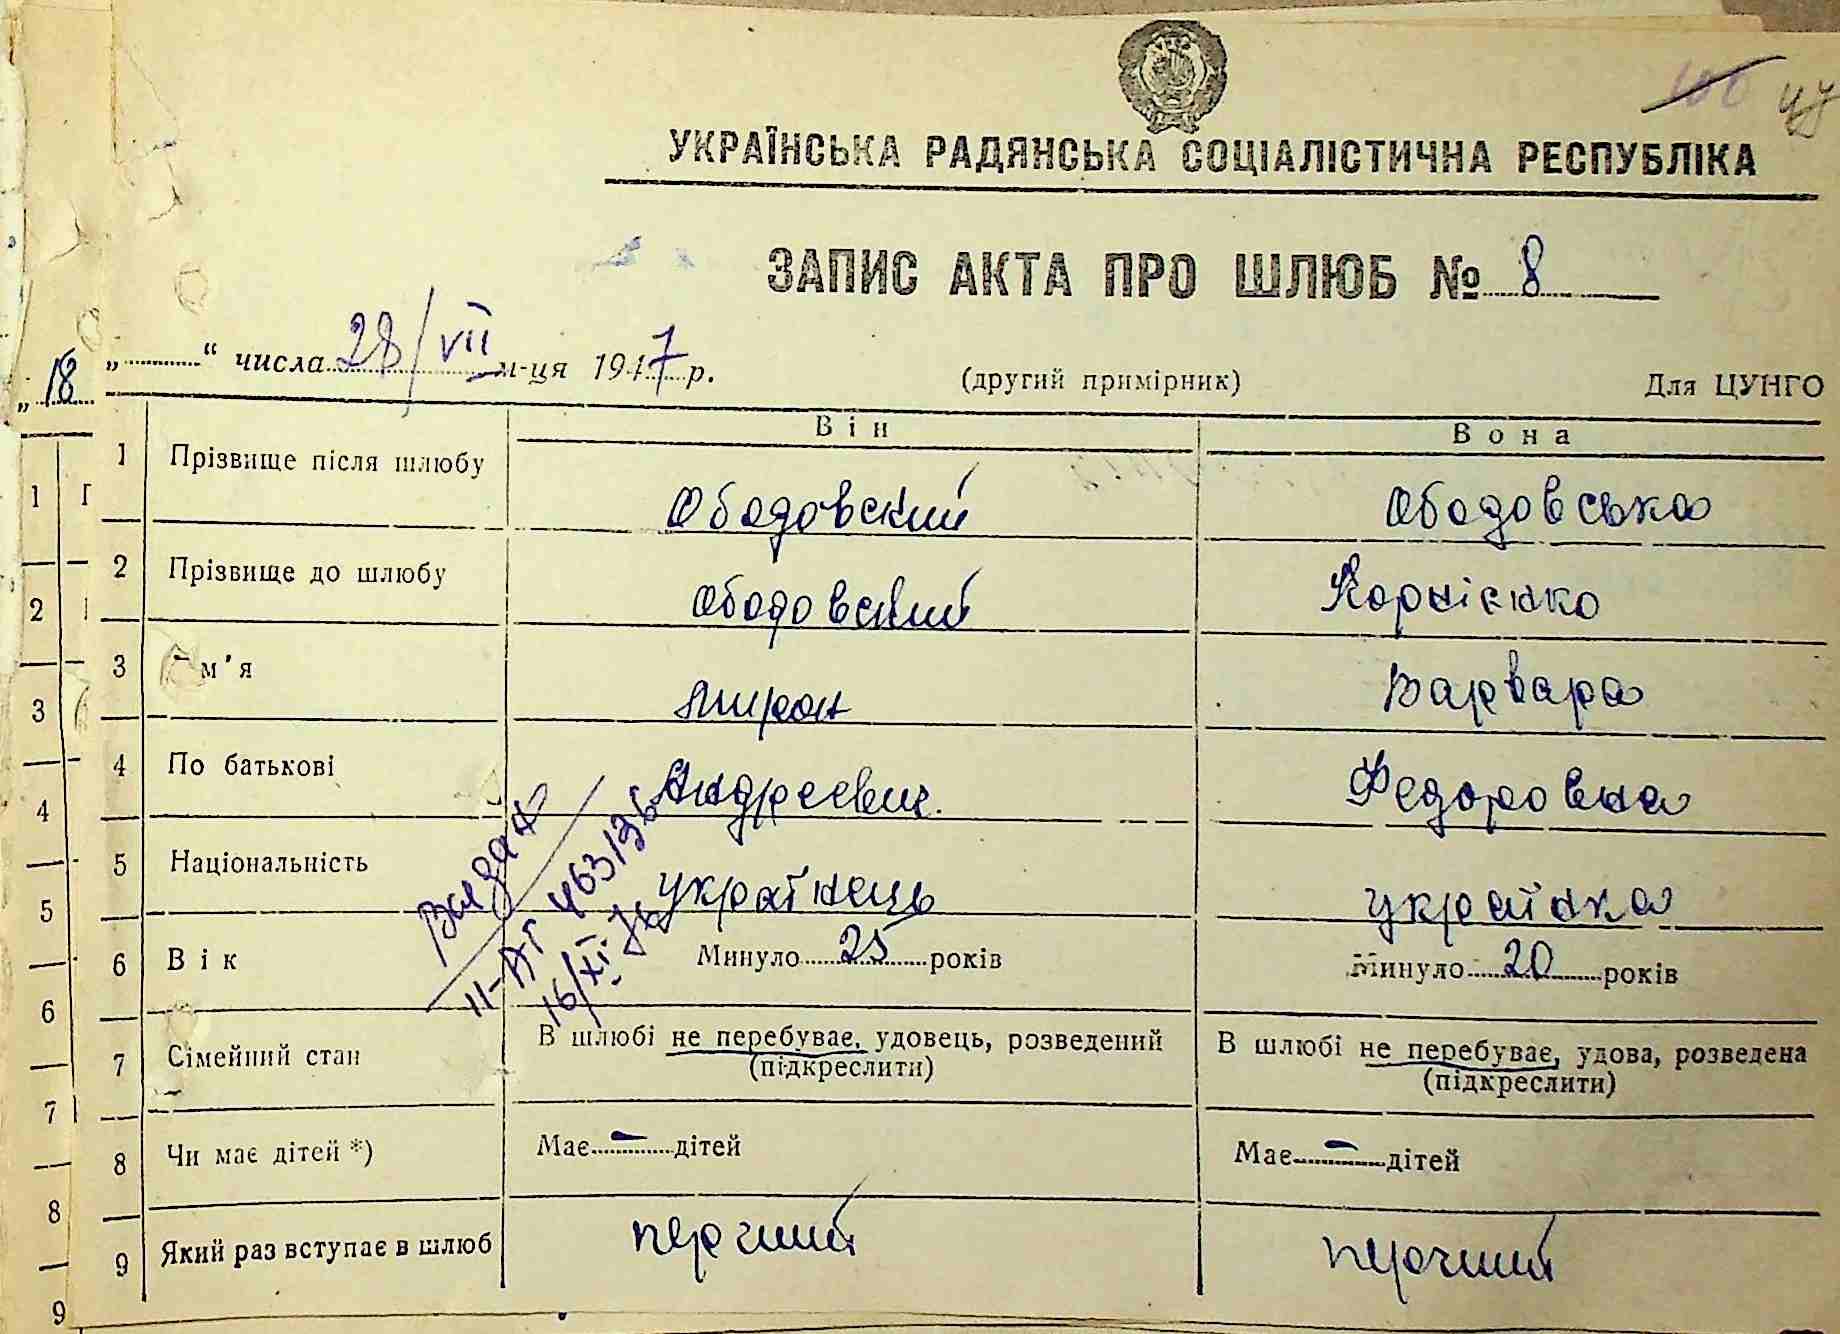 УКРАЇНСЬКА РАДЯНСЬКА СОЦІАЛІСТИЧНА РЕСПУБЛІКА
ЗАПИС АКТА ПРО ШЛЮБ № 8
„ “ числа 28/VII м-ця 1947 р. (другий примірник) Для ЦУНГО
„18
Він Вона
1 Прізвище після шлюбу Ободовский Ободовська
2 Прізвище до шлюбу Ободовский Корнієнко
3 м'я Мирон Варвара
4 По батькові Андреевич. Федоровна
5 Національність українець українка
6 Вік Минуло 25 років Минуло 20 років
Видан
II-АГ 463196
16/XI-
7 Сімейний стан В шлюбі не перебуває, удовець, розведений В шлюбі не перебуває, удова, розведена
(підкреслити) (підкреслити)
8 Чи має дітей *) Має — дітей Має — дітей
9 Який раз вступає в шлюб перший перший
1
2
3
4
5
6
7
8
9